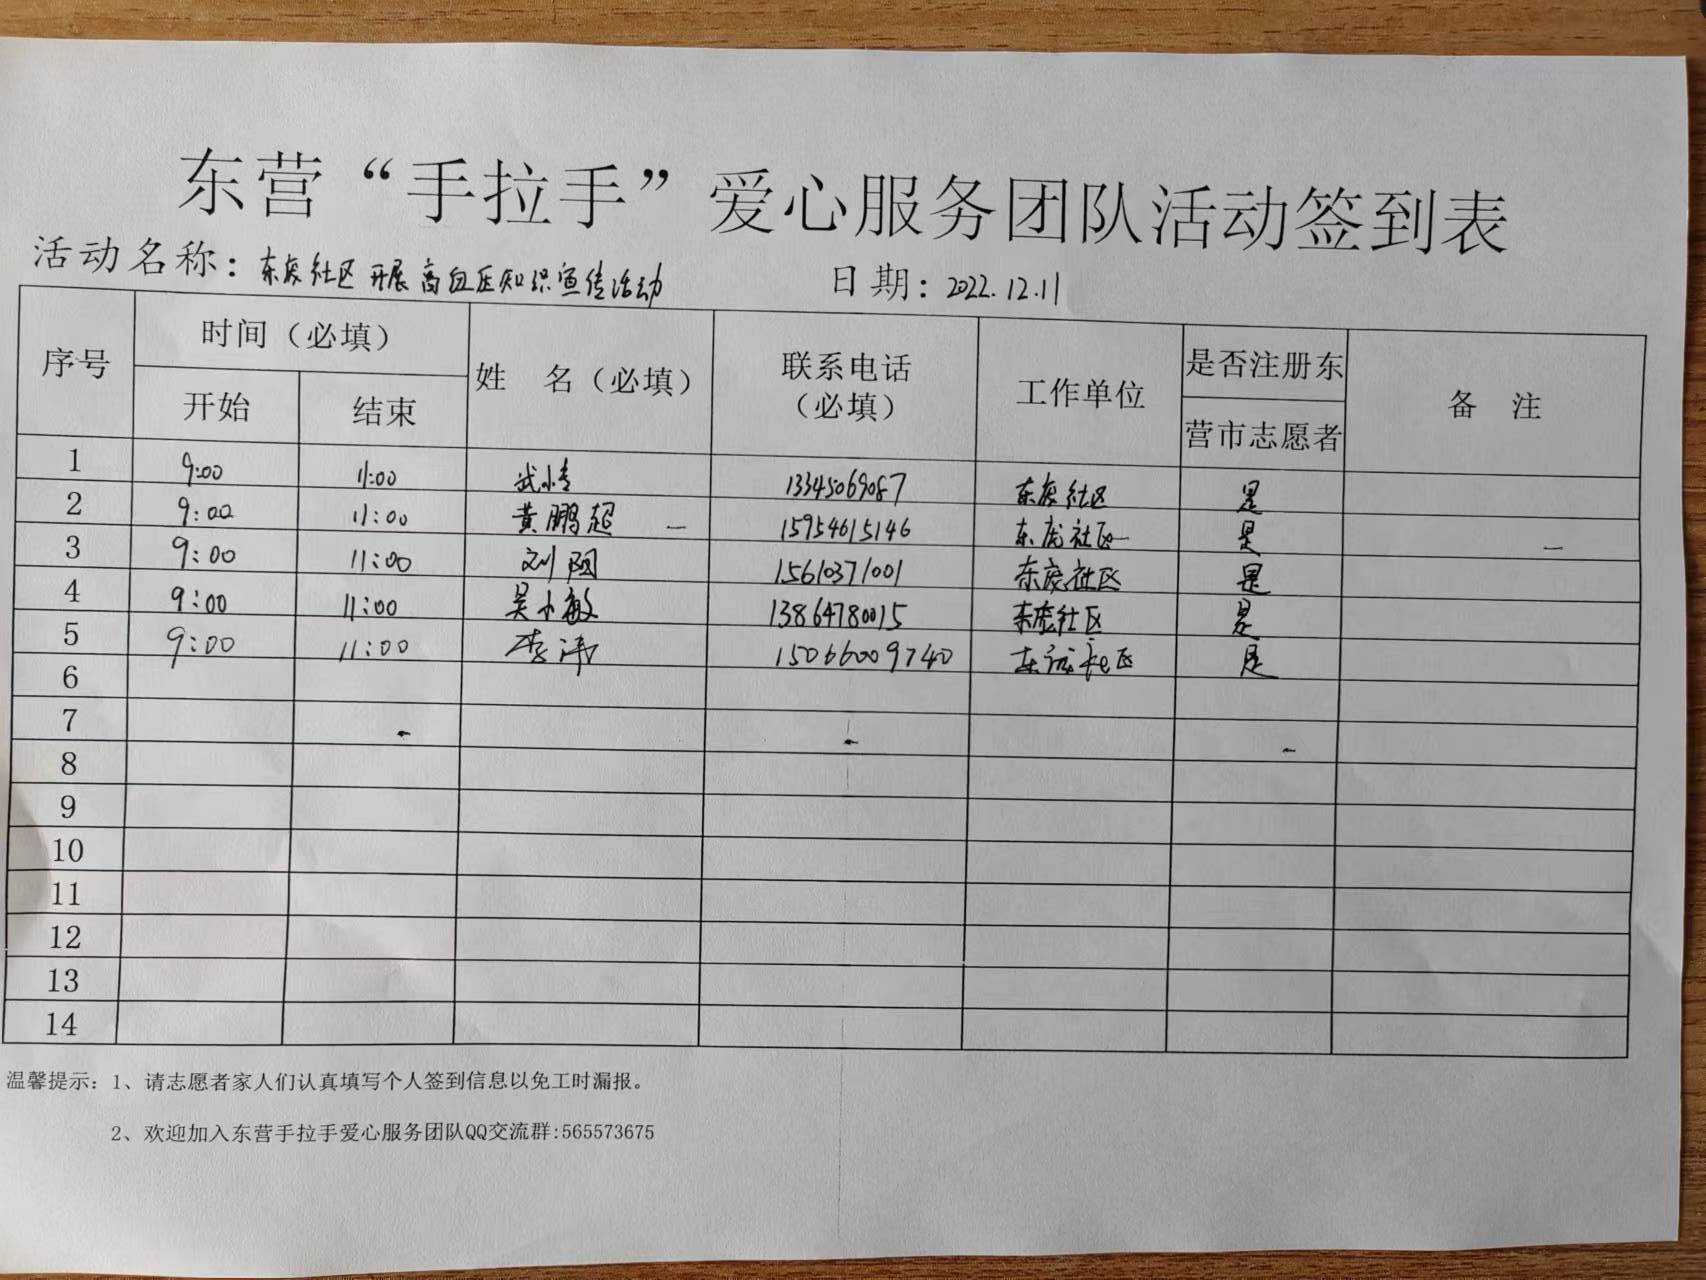 东营“手拉手”爱心服务团队活动签到表
活动名称：东庞社区开展高血压知识宣传活动 日期：2022.12.11
序号 时间（必填） 姓 名（必填） 联系电话（必填） 工作单位 是否注册东营市志愿者 备 注
开始 结束
1 9:00 11:00 武 13345069087 社区 是
2 9:00 11:00 黄鹏超 15954615146 社区 是
3 9:00 11:00 刘阳 15610371001 社区 是
4 9:00 11:00 吴小敏 13864780015 社区 是
5 9:00 11:00 李涛 15066009740 社区 是
6
7
8
9
10
11
12
13
14
温馨提示：1、请志愿者家人们认真填写个人签到信息以免工时漏报。
2、欢迎加入东营手拉手爱心服务团队QQ交流群:565573675